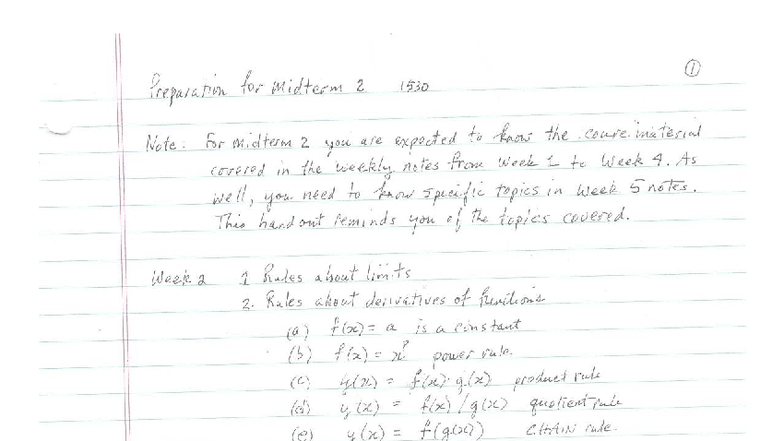 ①
Preparation for Midterm 2 1530
Note: For midterm 2 you are expected to know the course material
covered in the weekly notes from Week 1 to Week 4. As
well, you need to know specific topics in Week 5 notes.
This handout reminds you of the topics covered.
Week 2 1 Rules about limits
2. Rules about derivatives of functions
(a) f(x) = a is a constant
(b) f(x) = x^p power rule.
(c) y(x) = f(x)·g(x) product rule
(d) y(x) = f(x)/g(x) quotient rule
(e) y(x) = f(g(x)) CHAIN rule.